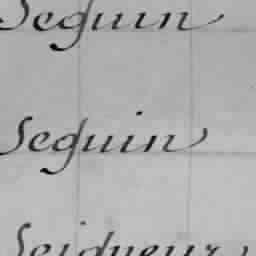 Seguin
Seguin
Seigneur